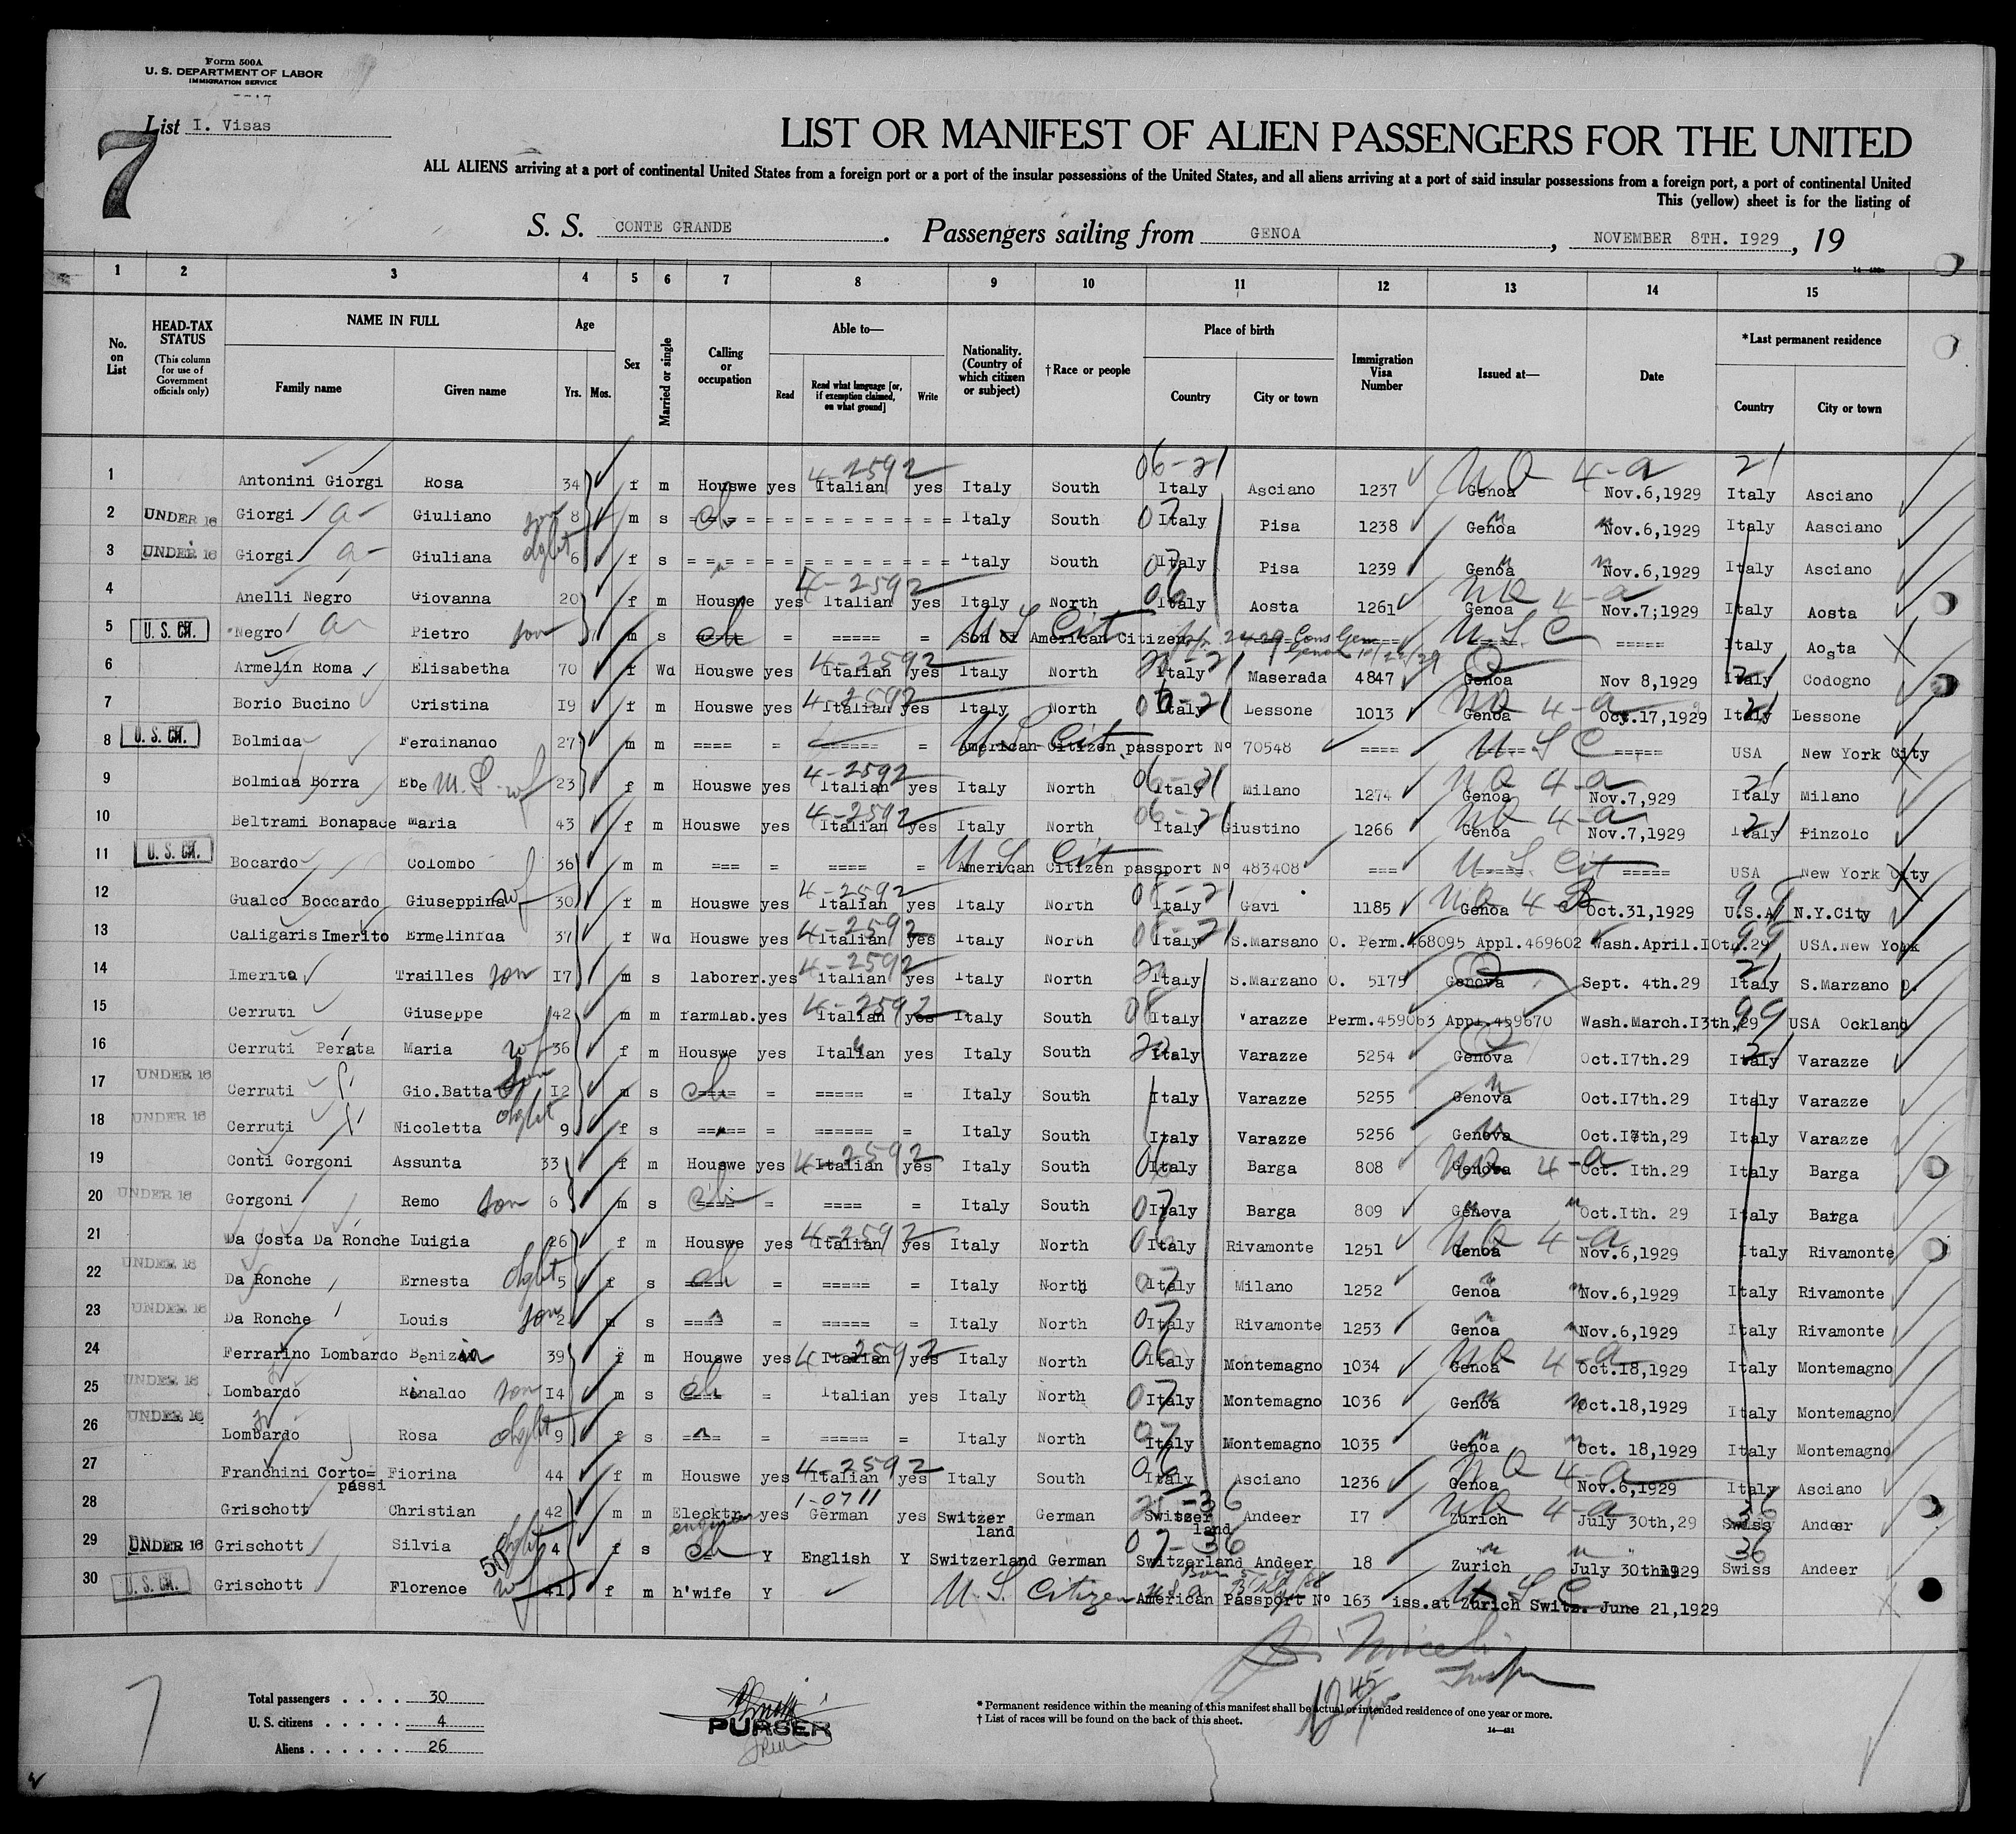 Form 500A
U. S. DEPARTMENT OF LABOR
IMMIGRATION SERVICE
List I. Visas
7
LIST OR MANIFEST OF ALIEN PASSENGERS FOR THE UNITED
ALL ALIENS arriving at a port of continental United States from a foreign port or a port of the insular possessions of the United States, and all aliens arriving at a port of said insular possessions from a foreign port, a port of continental United
This (yellow) sheet is for the listing of
S. S. CONTE GRANDE. Passengers sailing from GENOA, NOVEMBER 8TH. I929, 19
1 2 3 4 5 6 7 8 9 10 11 12 13 14 15
No. on List HEAD-TAX STATUS (This column for use of Government officials only) NAME IN FULL Family name Given name Age Yrs. Mos. Sex Married or single Calling or occupation Able to— Read Read what language [or, if exemption claimed, on what ground] Write Nationality. (Country of which citizen or subject) †Race or people Place of birth Country City or town Immigration Visa Number Issued at— Date *Last permanent residence Country City or town
1 Antonini Giorgi Rosa 34 f m Houswe yes 4-2592 Italian yes Italy South 06-21 Italy Asciano 1237 NQ 4-a Genoa Nov.6,1929 21 Italy Asciano
2 UNDER 16 Giorgi a- Giuliano son 8 m s ch = = = = = = = = = = = = Italy South 07 Italy Pisa 1238 Genoa Nov.6,1929 Italy Aasciano
3 UNDER 16 Giorgi a- Giuliana dght 6 f s = = = = = = = = = = = = Italy South 07 Italy Pisa 1239 Genoa Nov.6,1929 Italy Asciano
4 Anelli Negro Giovanna 20 f m Houswe yes 4-2592 Italian yes Italy North 06 Italy Aosta 1261 NQ 4-a Genoa Nov.7;1929 Italy Aosta
5 U. S. CIT. Negro a Pietro son 5 m s ch ==== = ===== = U S Cit Son of American Citizen 2429 Cons Gen Genoa 10/22/29 U.S.C ===== Italy Aosta
6 Armelin Roma Elisabetha 70 f Wd Houswe yes 4-2592 Italian yes Italy North 20-21 Italy Maserada 4847 Q Genoa Nov 8,1929 21 Italy Codogno
7 Borio Bucino Cristina I9 f m Houswe yes 4-2592 Italian yes Italy North 06-21 Italy Lessone 1013 NQ 4-a Genoa Oct.17,1929 21 Italy Lessone
8 U. S. CIT. Bolmida Ferdinando 27 m m ==== = ===== = U S Cit American Citizen passport Nº 70548 ==== U S C ===== USA New York City
9 Bolmida Borra Ebe M. S. wf 23 f m Houswe yes 4-2592 Italian yes Italy North 06-21 Italy Milano 1274 NQ 4-a Genoa Nov.7,929 21 Italy Milano
10 Beltrami Bonapace Maria 43 f m Houswe yes 4-2592 Italian yes Italy North 06-21 Italy Giustino 1266 NQ 4-a Genoa Nov.7,1929 21 Italy Pinzolo
11 U. S. CIT. Bocardo Colombo 36 m m === = ==== = U S Cit American Citizen passport Nº 483408 === U S Cit ===== USA New York City
12 Gualco Boccardo Giuseppina wf 30 f m Houswe yes 4-2592 Italian yes Italy North 21 Italy Gavi 1185 NQ 4 Genoa Oct.31,1929 99 U.S.A. N.Y.City
13 Caligaris Imerito Ermelinfda 37 f Wd Houswe yes 4-2592 Italian yes Italy North 08-21 Italy S.Marsano O. Perm.468095 Appl.469602 Wash.April.I0th.29 99 USA.New York
14 Imerito Trailles son I7 m s laborer.yes 4-2592 Italian yes Italy North 20 Italy S.Marzano O. 5175 Q Genova Sept. 4th.29 21 Italy S.Marzano O.
15 Cerruti Giuseppe 42 m m farmlab.yes 4-2592 Italian yes Italy South 08 Italy Varazze Perm.459063 Appl.459670 Wash.March.I3th,29 99 USA Ockland
16 Cerruti Perata Maria wf 36 f m Houswe yes Italian yes Italy South 20 Italy Varazze 5254 Q Genova Oct.I7th.29 21 Italy Varazze
17 UNDER 16 Cerruti Gio.Batta son I2 m s ch ==== = ===== = Italy South Italy Varazze 5255 Genova Oct.I7th.29 Italy Varazze
18 UNDER 16 Cerruti Nicoletta dght 9 f s ===== = ====== = Italy South Italy Varazze 5256 Genova Oct.I7th,29 Italy Varazze
19 Conti Gorgoni Assunta 33 f m Houswe yes 4-2592 Italian yes Italy South 06 Italy Barga 808 NQ 4-a Genova Oct. Ith.29 Italy Barga
20 UNDER 16 Gorgoni Remo son 6 m s ch ==== = ==== = Italy South 07 Italy Barga 809 Genova Oct.Ith. 29 Italy Barga
21 Da Costa Da Ronche Luigia 26 f m Houswe yes 4-2592 Italian yes Italy North 06 Italy Rivamonte 1251 NQ 4-a Genoa Nov.6,1929 Italy Rivamonte
22 UNDER 16 Da Ronche Ernesta dght 5 f s ch ==== = ===== = Italy North 07 Italy Milano 1252 Genoa Nov.6,1929 Italy Rivamonte
23 UNDER 16 Da Ronche Louis son 2 m s ==== = ===== = Italy North 07 Italy Rivamonte 1253 Genoa Nov.6,1929 Italy Rivamonte
24 Ferrarino Lombardo Benizia 39 f m Houswe yes 4-2592 Italian yes Italy North 06 Italy Montemagno 1034 NQ 4-a Genoa Oct.18,1929 Italy Montemagno
25 UNDER 16 Lombardo Rinaldo son I4 m s ch = Italian yes Italy North 07 Italy Montemagno 1036 Genoa Oct.18,1929 Italy Montemagno
26 UNDER 16 Lombardo Rosa dght 9 f s ==== = ===== = Italy North 07 Italy Montemagno 1035 Genoa Oct. 18,1929 Italy Montemagno
27 Franchini Corto=passi Fiorina 44 f m Houswe yes 4-2592 Italian yes Italy South 06 Italy Asciano 1236 NQ 4-a Genoa Nov.6,1929 Italy Asciano
28 Grischott Christian 42 m m Elecktr. engineer yes 1-0711 German yes Switzerland German 36 Switzerland Andeer I7 NQ 4-a Zurich July 30th,29 36 Swiss Andeer
29 UNDER 16 Grischott Silvia dght 4 f s ch Y English Y Switzerland German 07-36 Switzerland Andeer 18 Zurich July 30th1929 36 Swiss Andeer
30 U. S. CIT. Grischott Florence wf 50 41 f m h'wife Y U. S. Citizen American Passport Nº 163 iss.at Zurich Switz. June 21,1929 U S C
Total passengers . . . . 30
U. S. citizens . . . . . 4
Aliens . . . . . . 26
PURSER
* Permanent residence within the meaning of this manifest shall be actual or intended residence of one year or more.
† List of races will be found on the back of this sheet.
14—431